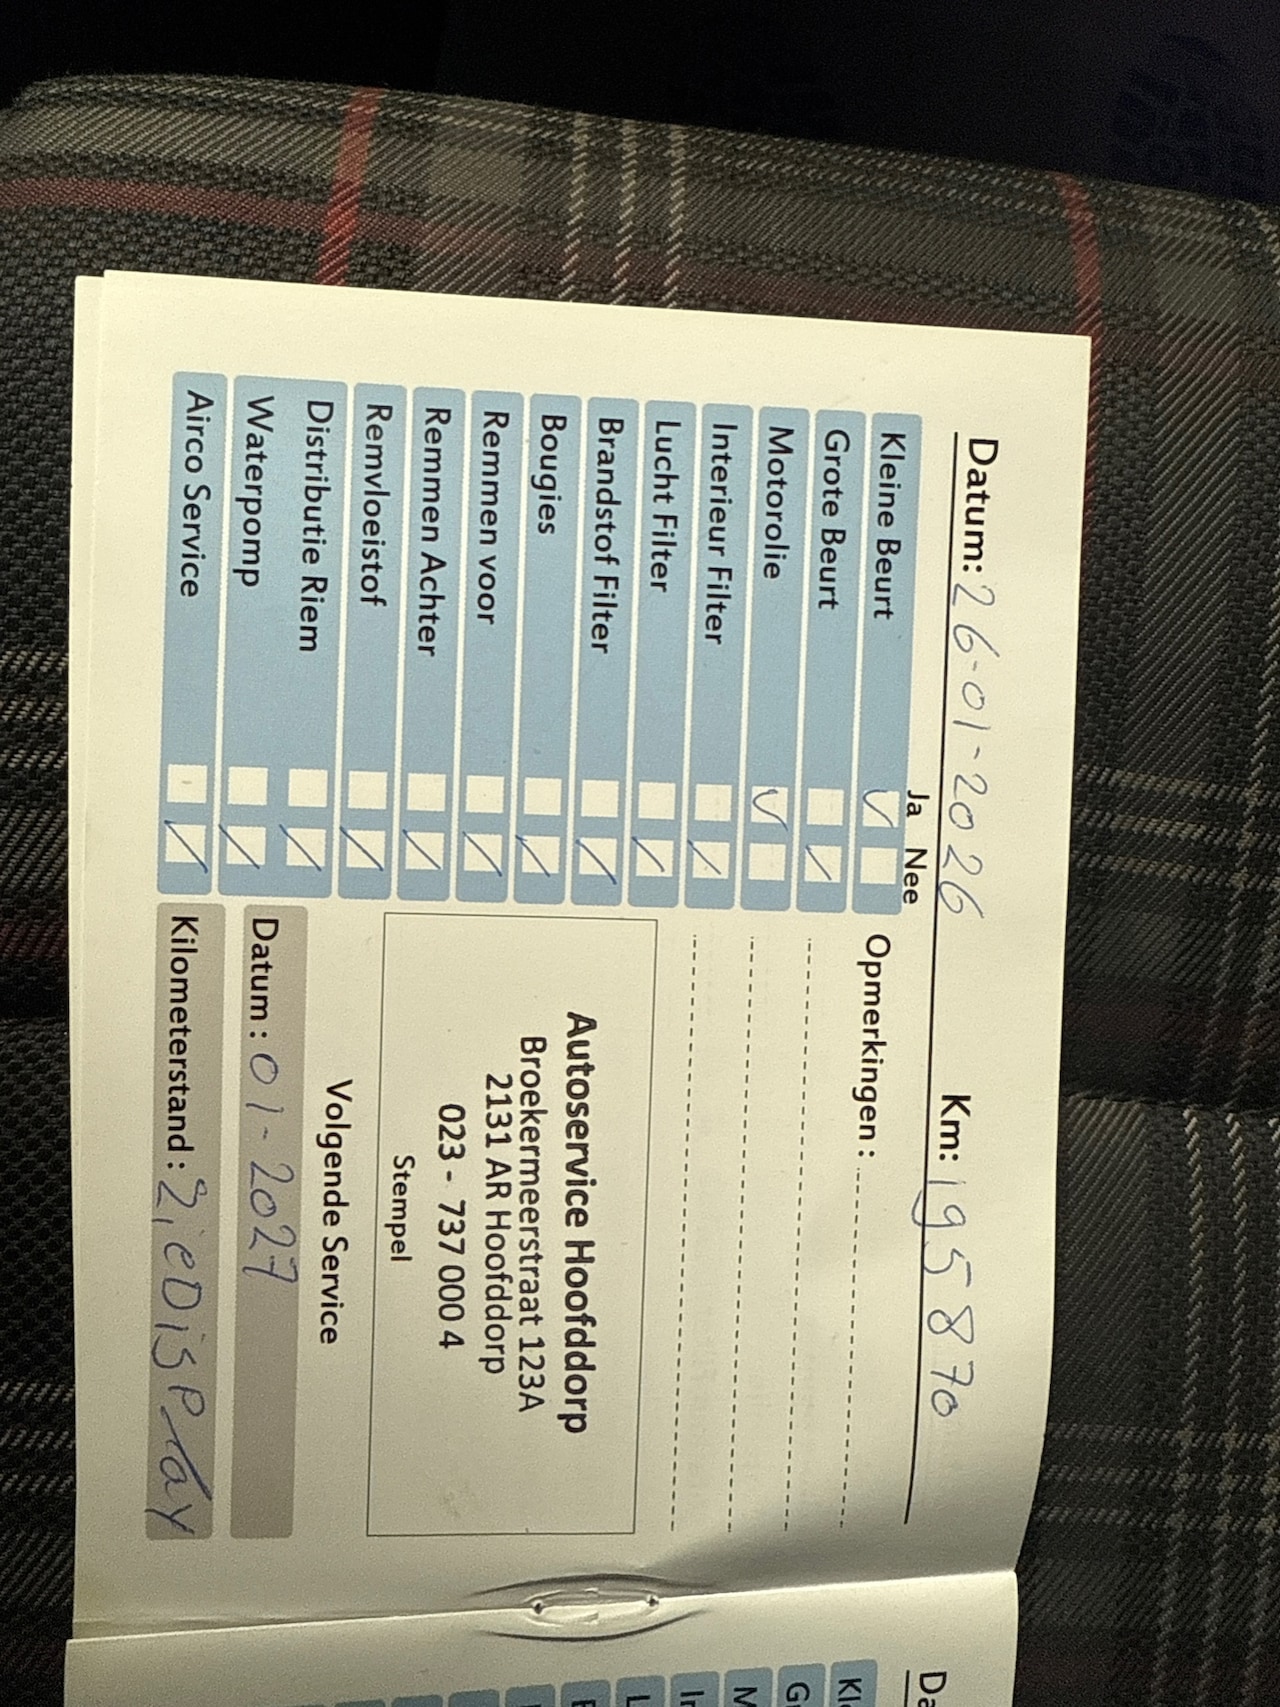 Datum: 26-01-2026 Km: 195870
Ja Nee
Kleine Beurt
Grote Beurt
Motorolie
Interieur Filter
Lucht Filter
Brandstof Filter
Bougies
Remmen voor
Remmen Achter
Remvloeistof
Distributie Riem
Waterpomp
Airco Service
Opmerkingen :
Autoservice Hoofddorp
Broekermeerstraat 123A
2131 AR Hoofddorp
023 - 737 000 4
Stempel
Volgende Service
Datum : 01-2027
Kilometerstand : ZieDisplay